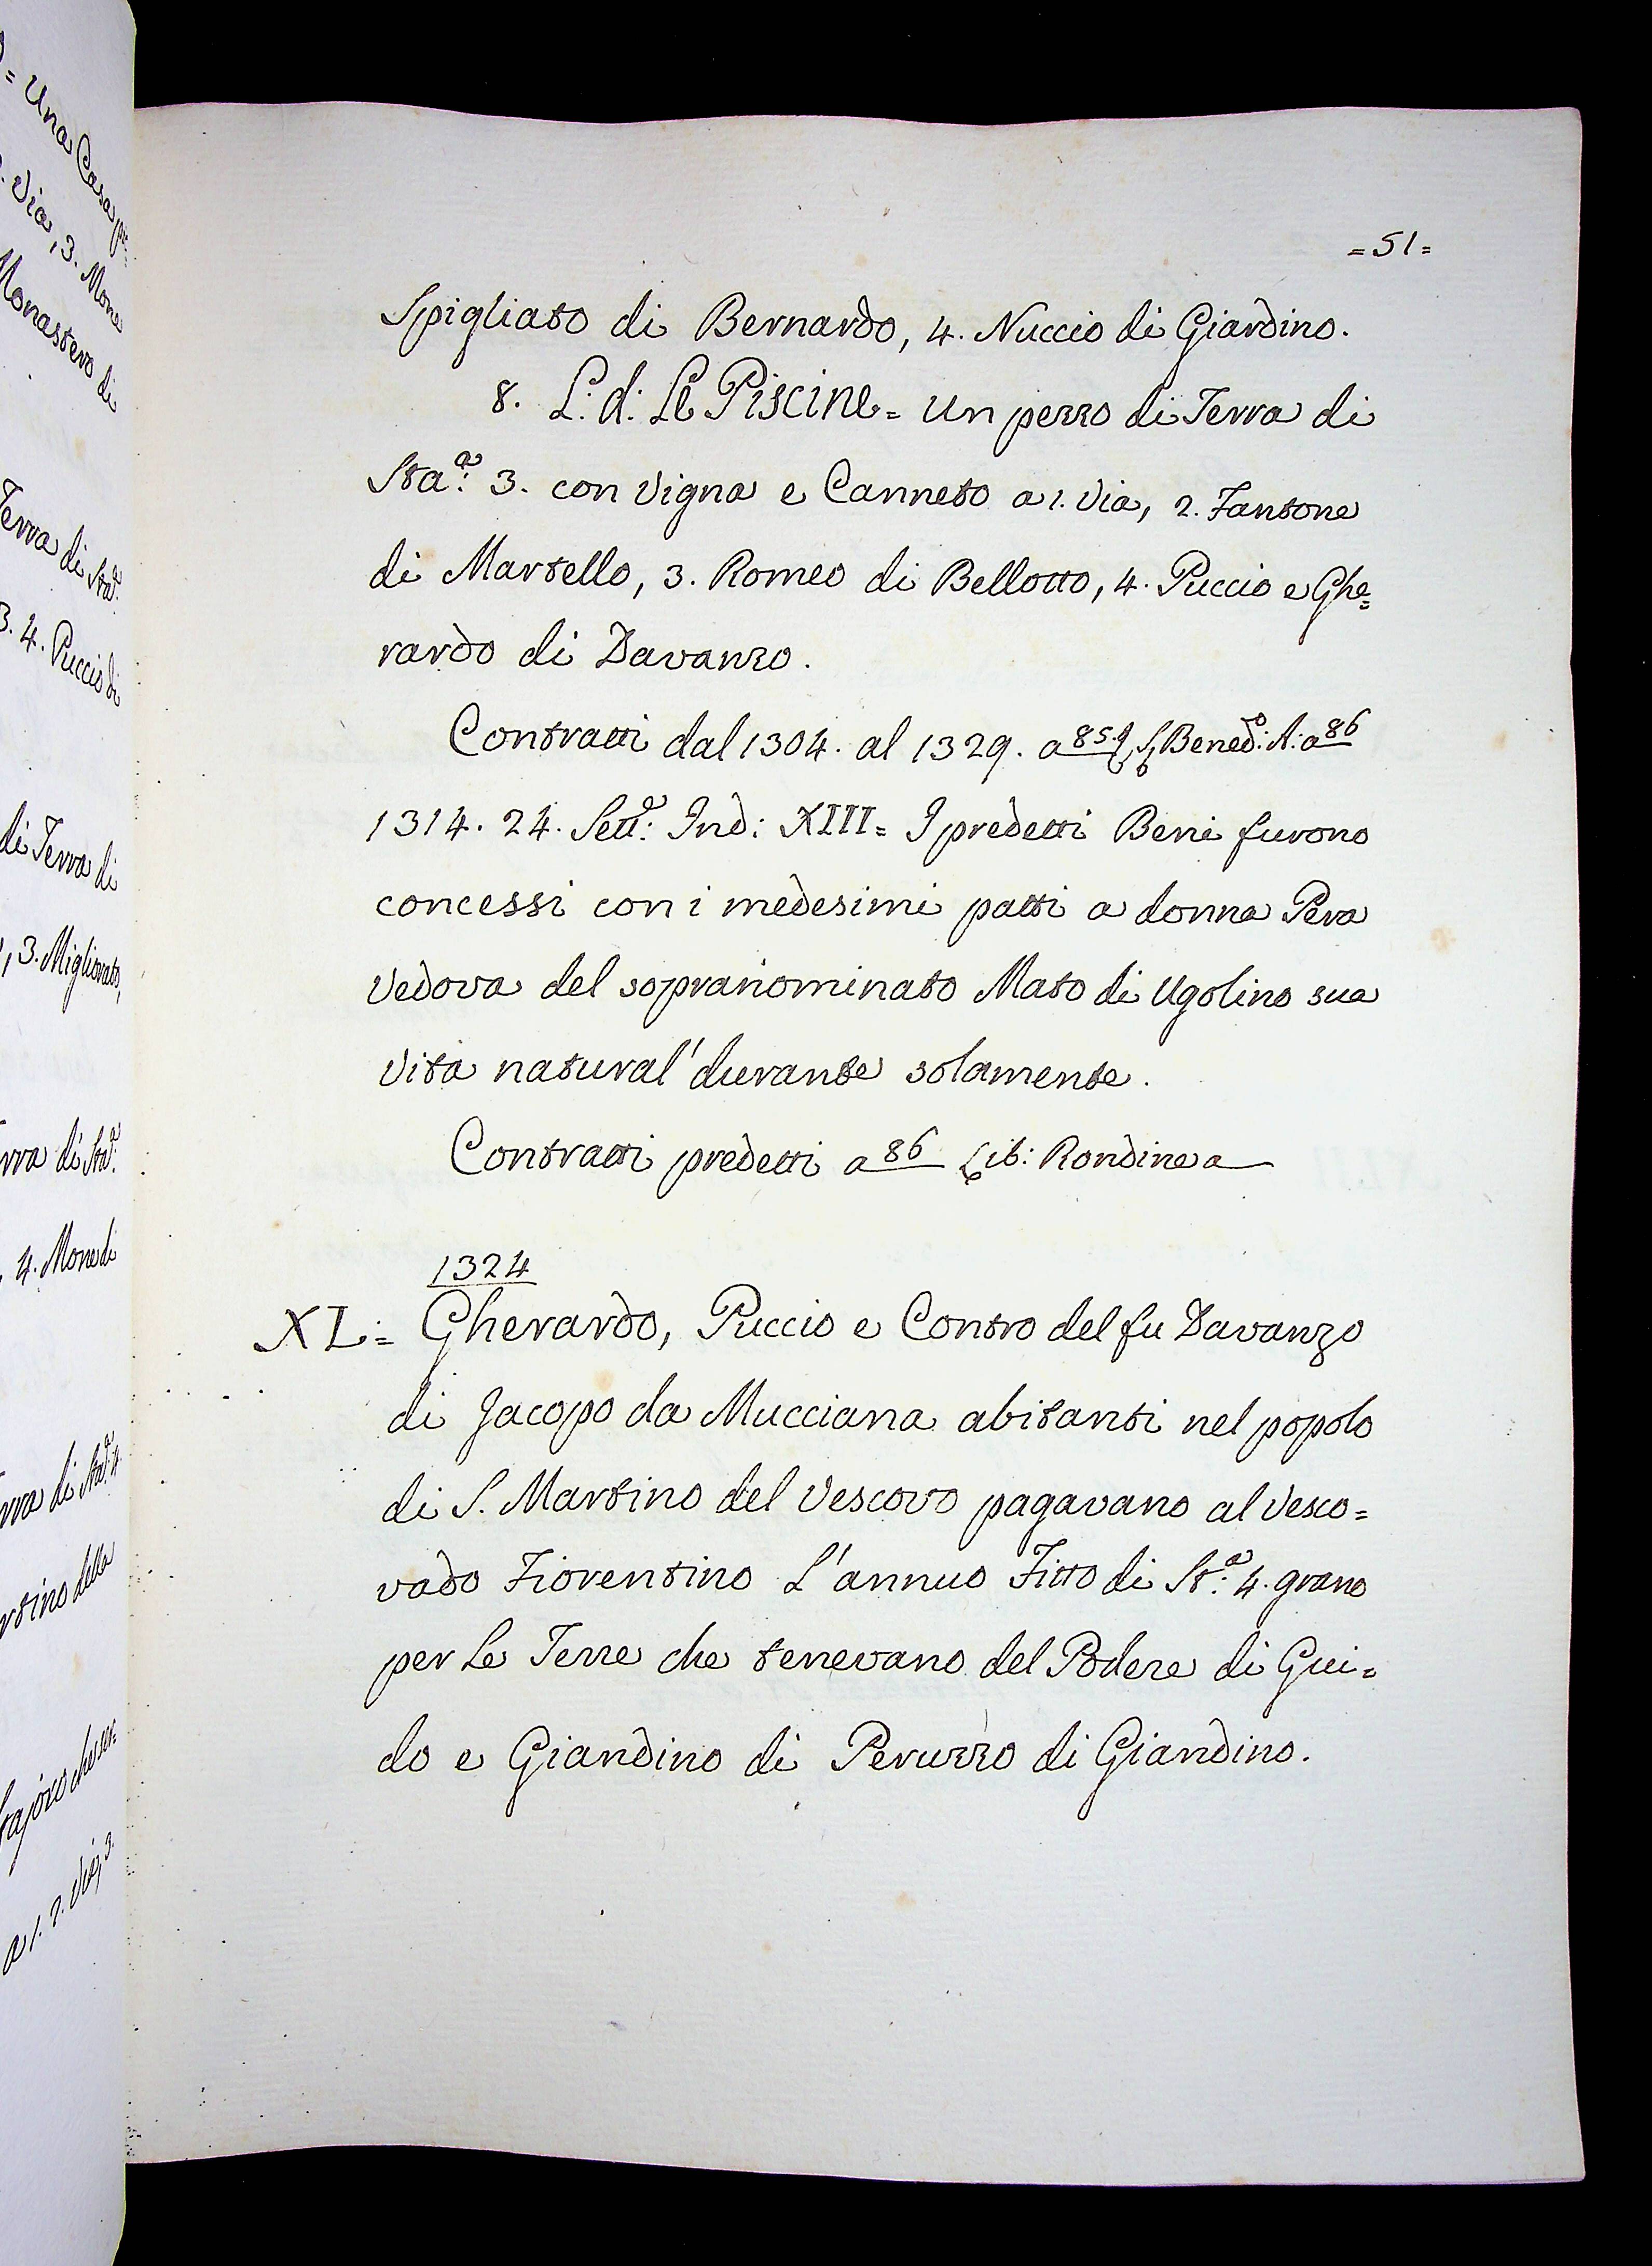 = 51 =
Spigliato di Bernardo, 4. Nuccio di Giardino.
8. L: d: Le Piscine = Un pezzo di Terra di
Staª: 3. con Vigna e Canneto a 1. Via, 2. Fantone
di Martello, 3. Romeo di Bellotto, 4. Puccio e Ghe=
rardo di Davanzo.
Contratti dal 1304. al 1329. a 85. Benedº: A: a 86
1314. 24. Settᵉ: Ind: XIII = I predetti Beni furono
concessi con i medesimi patti a donna Pera
Vedova del sopranominato Mato di Ugolino sua
Vita natural' durante solamente.
Contratti predetti a 86 Lib: Rondine a
1324
XL = Gherardo, Puccio e Contro del fu Davanzo
di Jacopo da Mucciana abitanti nel popolo
di S. Martino del Vescovo pagavano al Vesco=
vado Fiorentino L'annuo Fitto di Stª: 4. grano
per Le Terre che tenevano del Podere di Gui=
do e Giandino di Peruzzo di Giandino.
= Una Casa
Via, 3. Mone
Monastero di
Terra di Staª:
3. 4. Puccio di
di Terra di
, 3. Migliorato,
di Staª:
4. Mone di
di Staª: 4
della
a 1. 2. Via, 3.